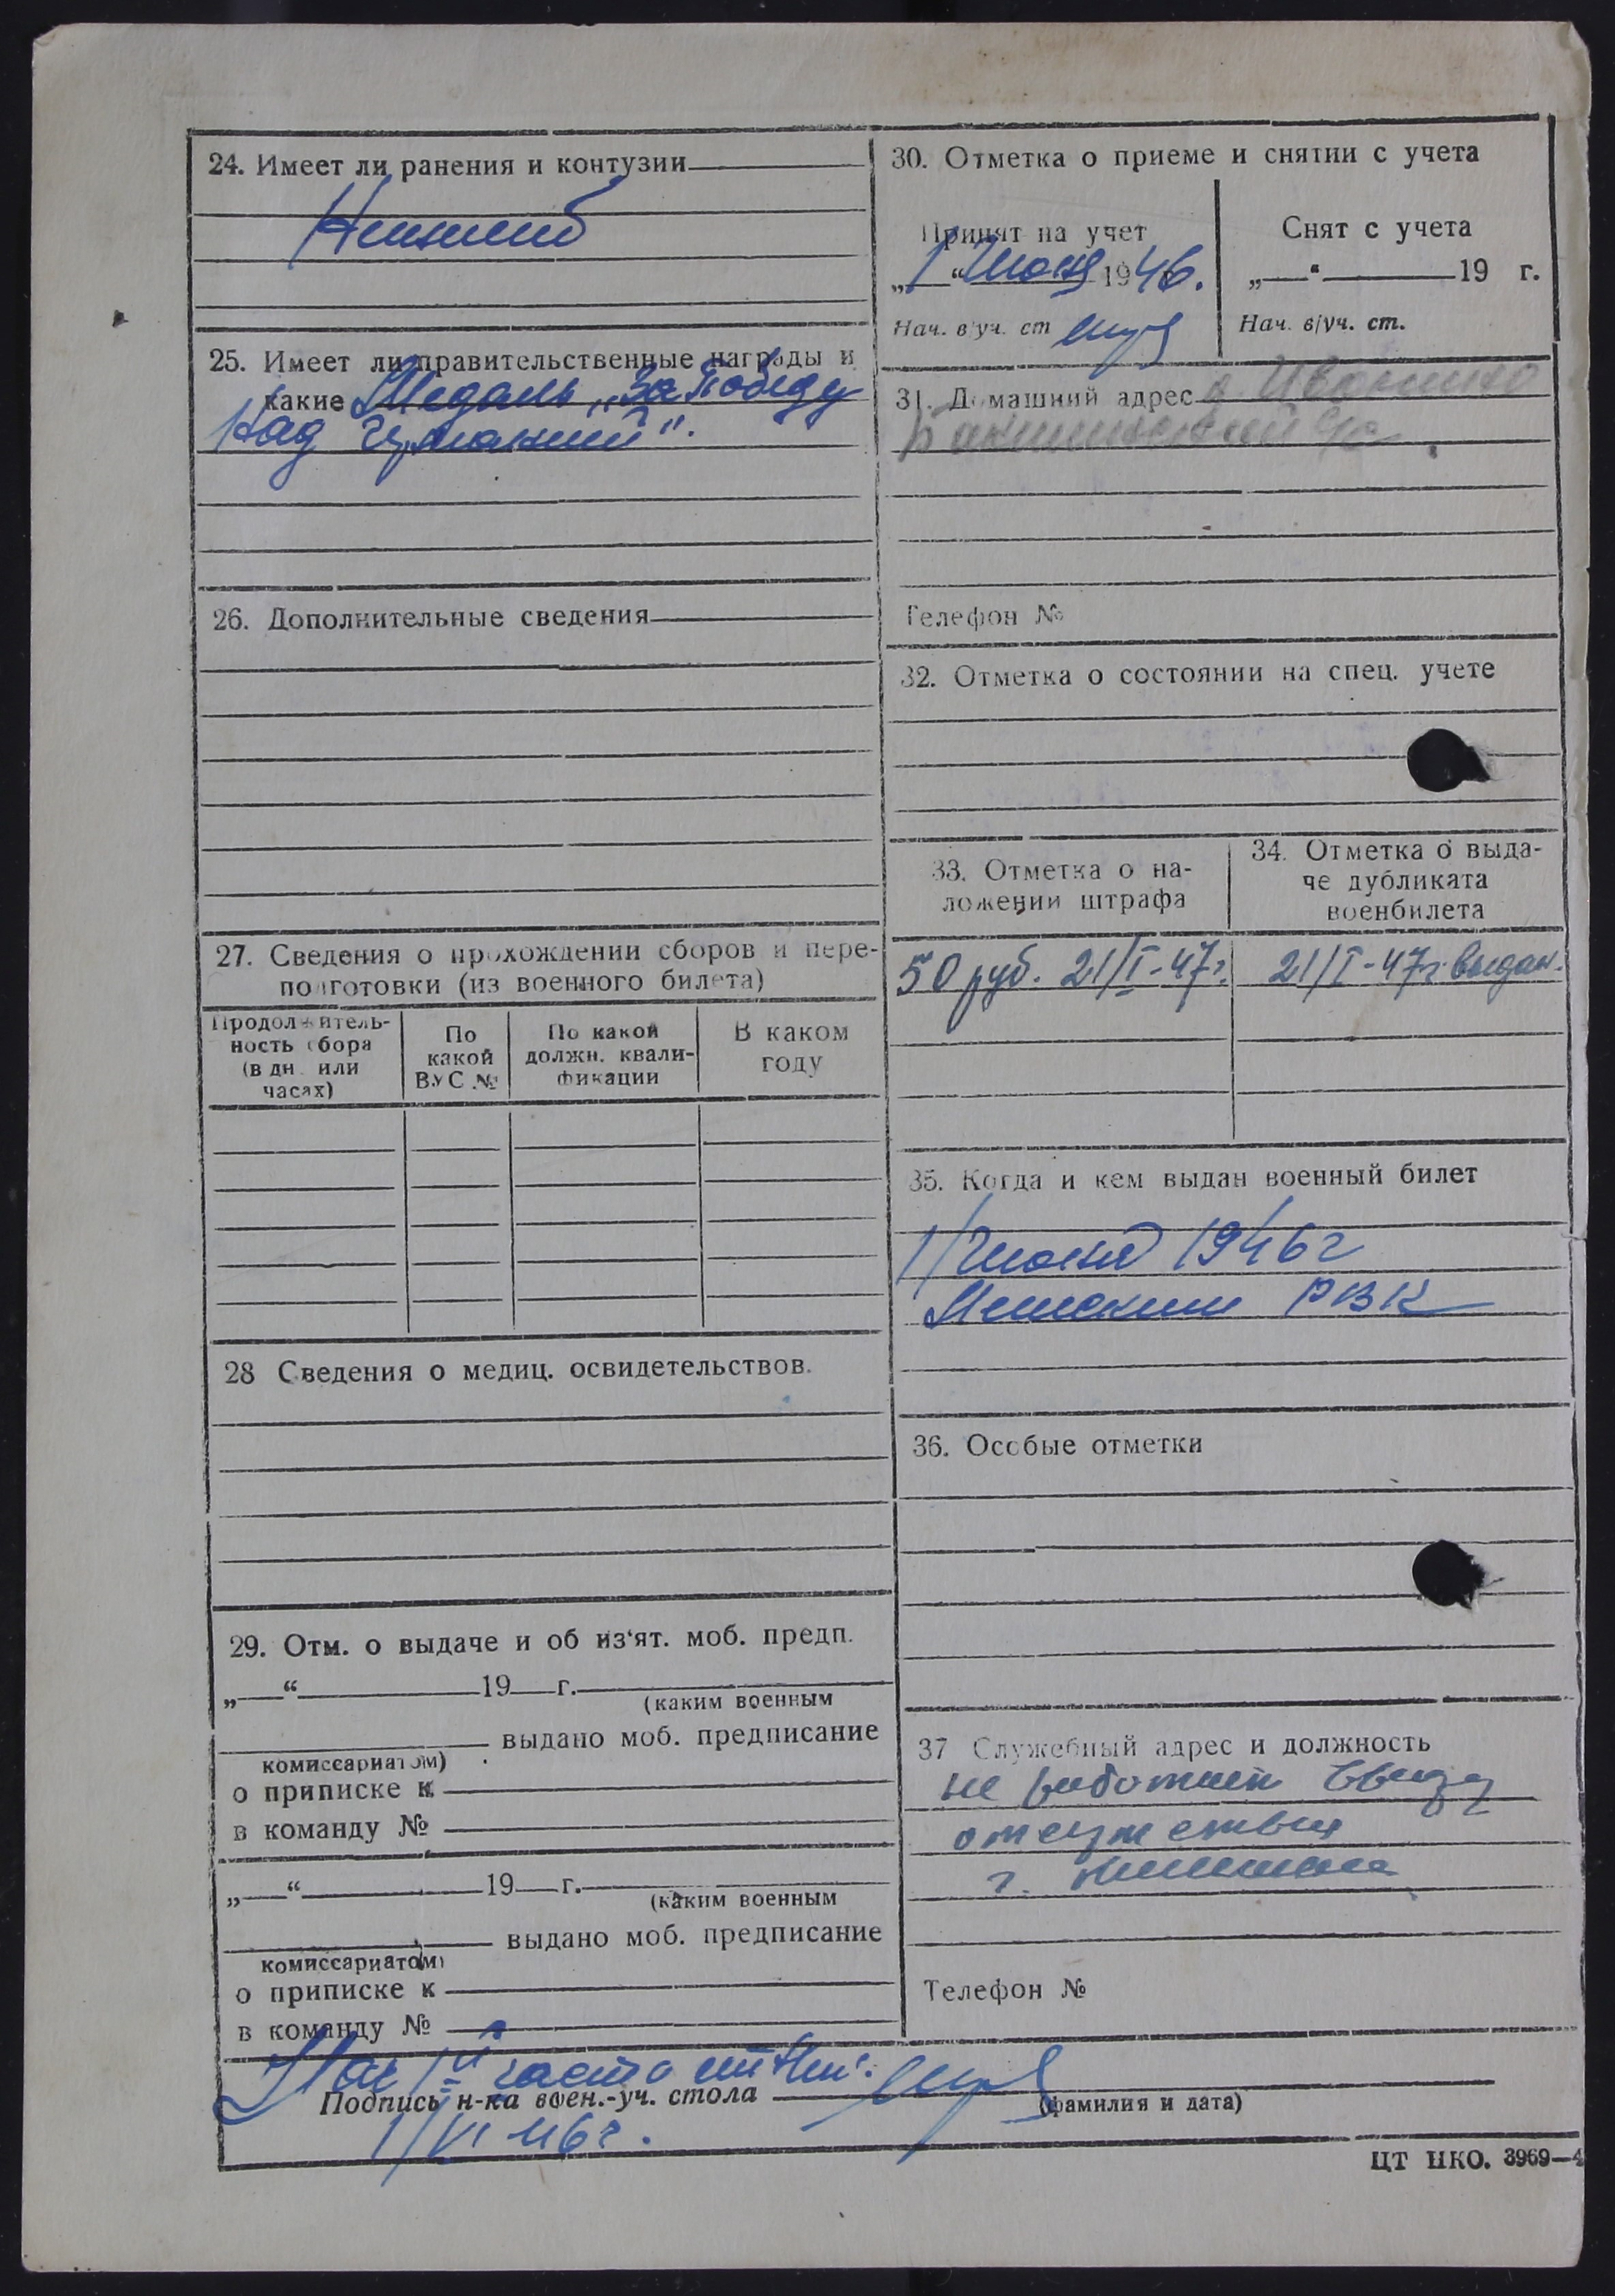 24. Имеет ли ранения и контузии
25. Имеет ли правительственные награды и
какие Медаль „За Победу
над Германией".
26. Дополнительные сведения
27. Сведения о прохождении сборов и пере-
подготовки (из военного билета)
Продолжитель-
ность сбора
(в дн. или
часах)
По
какой
ВУС №
По какой
должн. квали-
фикации
В каком
году
28 Сведения о медиц. освидетельствов.
29. Отм. о выдаче и об из‘ят. моб. предп.
„ “ 19 г.
(каким военным
выдано моб. предписание
комиссариатом)
о приписке к
в команду №
„ “ 19 г.
(каким военным
выдано моб. предписание
комиссариатом)
о приписке к
в команду №
30. Отметка о приеме и снятии с учета
Принят на учет
„1“ Июня 1946.
Нач. в/уч. ст
Снят с учета
„ “ 19 г.
Нач. в/уч. ст.
31. Домашний адрес
Телефон №
32. Отметка о состоянии на спец. учете
33. Отметка о на-
ложении штрафа
50 руб. 21/I-47г.
34. Отметка о выда-
че дубликата
военбилета
21/I-47г. выдан.
35. Когда и кем выдан военный билет
1/Июня 1946г
РВК
36. Особые отметки
37 Служебный адрес и должность
не работает ввиду
отсутствия
г.
Телефон №
Нач части
Подпись н-ка воен.-уч. стола
(фамилия и дата)
1/VI 46г.
ЦТ НКО. 3969—4